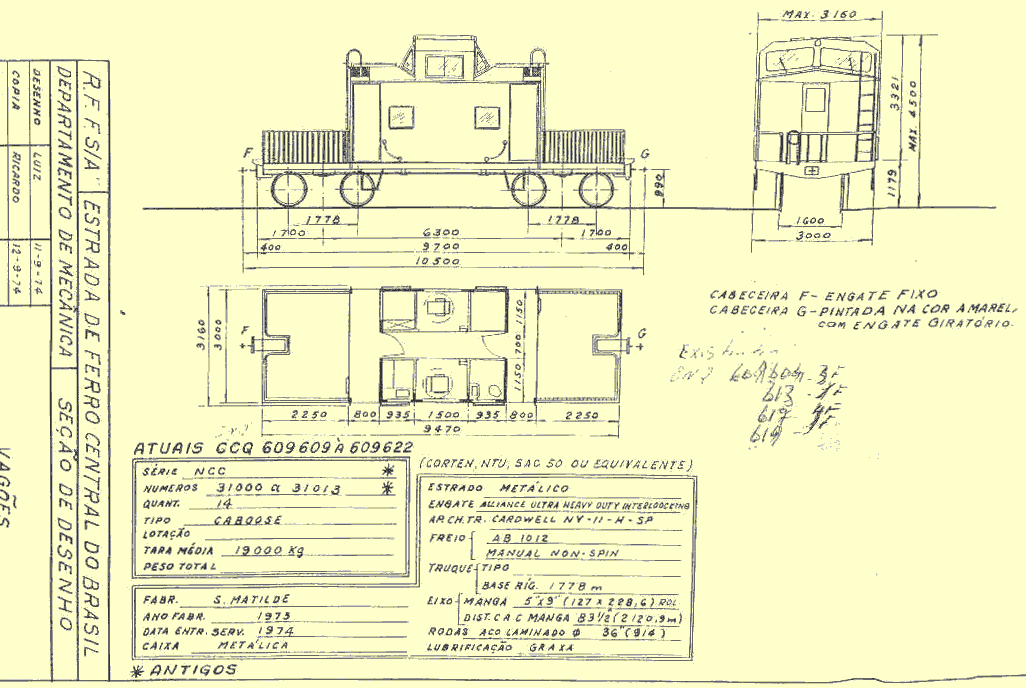 MAX. 3160
F
G
990
1778
1778
1700
6300
1700
400
9700
400
10 500
3321
MAX 4500
1179
1600
3000
CABECEIRA F- ENGATE FIXO
CABECEIRA G-PINTADA NA COR AMAREL.
COM ENGATE GIRATÓRIO.
3160
3000
F
G
1150
700
1150
2250
800
935
1500
935
800
2250
9470
609604
613
617
619
ATUAIS GCQ 609609 À 609622
SÉRIE NCC *
NUMEROS 31000 a 31013 *
QUANT. 14
TIPO CABOOSE
LOTAÇÃO
TARA MÉDIA 19000 Kg
PESO TOTAL
FABR. S. MATILDE
ANO FABR. 1973
DATA ENTR. SERV. 1974
CAIXA METÁLICA
* ANTIGOS
(CORTEN, NTU, SAC 50 OU EQUIVALENTE)
ESTRADO METÁLICO
ENGATE ALLIANCE ULTRA HEAVY DUTY INTERLOOCKING
AP. CH. TR. CARDWELL NY-11-H-SP
FREIO AB 1012
MANUAL NON-SPIN
TRUQUE TIPO
BASE RÍG. 1778 m
EIXO MANGA 5"x9" (127 x 228,6) ROL
DIST. C A C MANGA 83 1/2 (2120,9m)
RODAS AÇO LAMINADO Φ 36" (914)
LUBRIFICAÇÃO GRAXA
R.F.F.S/A. ESTRADA DE FERRO CENTRAL DO BRASIL
DEPARTAMENTO DE MECÂNICA SEÇÃO DE DESENHO
DESENHO LUIZ 11-9-74
COPIA RICARDO 12-9-74
VAGÕES